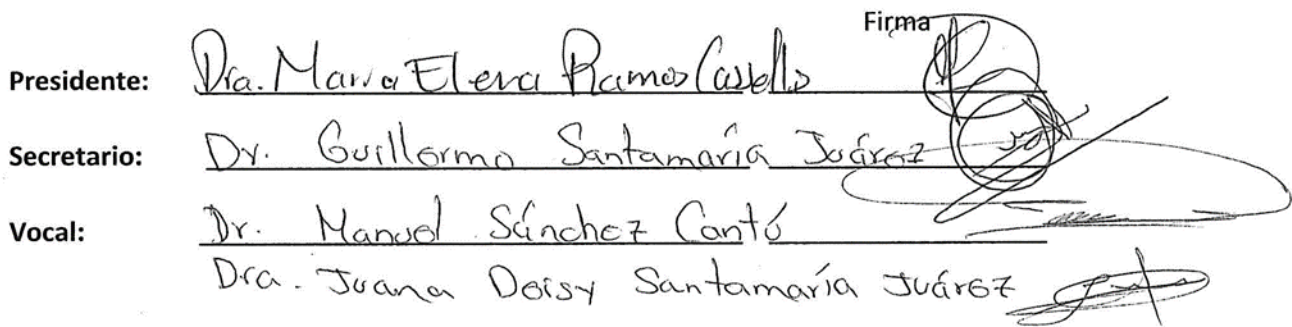 Firma
Presidente: Dra. Maria Elena Ramos Casells
Secretario: Dr. Guillermo Santamaría Juárez
Vocal: Dr. Manuel Sánchez Cantú
Dra. Juana Deisy Santamaría Juárez